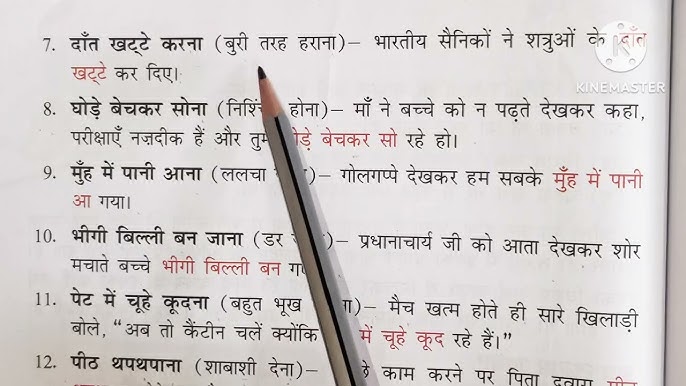 7. दाँत खट्टे करना (बुरी तरह हराना)– भारतीय सैनिकों ने शत्रुओं के दाँत
KINEMASTER
खट्टे कर दिए।
8. घोड़े बेचकर सोना होना)– माँ ने बच्चे को न पढ़ते देखकर कहा,
परीक्षाएँ नज़दीक हैं और तुम बेचकर सो रहे हो।
9. मुँह में पानी आना (ललचा – गोलगप्पे देखकर हम सबके मुँह में पानी
आ गया।
10. भीगी बिल्ली बन जाना (डर – प्रधानाचार्य जी को आता देखकर शोर
मचाते बच्चे भीगी बिल्ली बन
11. पेट में चूहे कूदना (बहुत भूख – मैच खत्म होते ही सारे खिलाड़ी
बोले, “अब तो कैंटीन चलें क्योंकि में चूहे कूद रहे हैं।”
12. पीठ थपथपाना (शाबाशी देना)– काम करने पर पिता